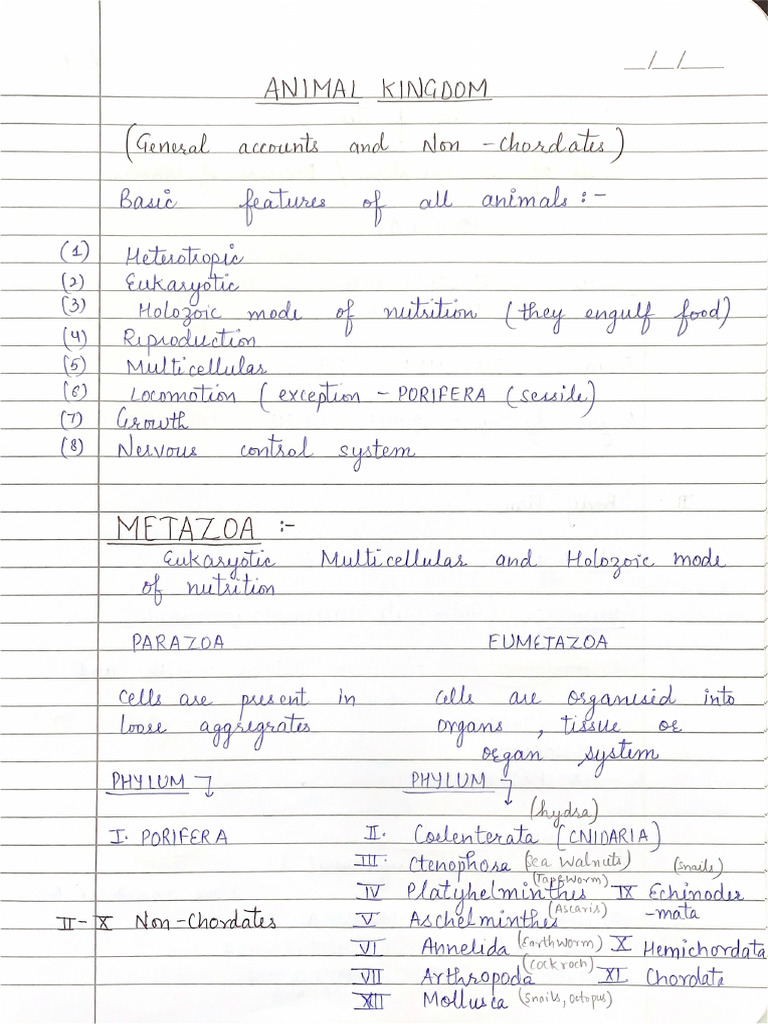 __/__/__
ANIMAL KINGDOM
(General accounts and Non-Chordates)
Basic features of all animals :-
(1) Heterotropic
(2) Eukaryotic
(3) Holozoic mode of nutrition (they engulf food)
(4) Reproduction
(5) Multicellular
(6) Locomotion (exception - PORIFERA (sessile)
(7) Growth
(8) Nervous control system
METAZOA :-
Eukaryotic Multicellular and Holozoic mode
of nutrition
PARAZOA EUMETAZOA
Cells are present in cells are organised into
loose aggregrates organs, tissue or
organ system
PHYLUM PHYLUM
(hydra)
I. PORIFERA II. Coelenterata (CNIDARIA)
III. Ctenophora (Sea Walnuts) (snails)
(Tapeworm)
IV Platyhelminthes IX Echinoder
II-X Non-Chordates V Aschelminthes (Ascaris) -mata
VI Annelida (Earthworm) X Hemichordata
(Cockroch)
VII Arthropoda XI Chordate
XII Mollusca (snails, octopus)